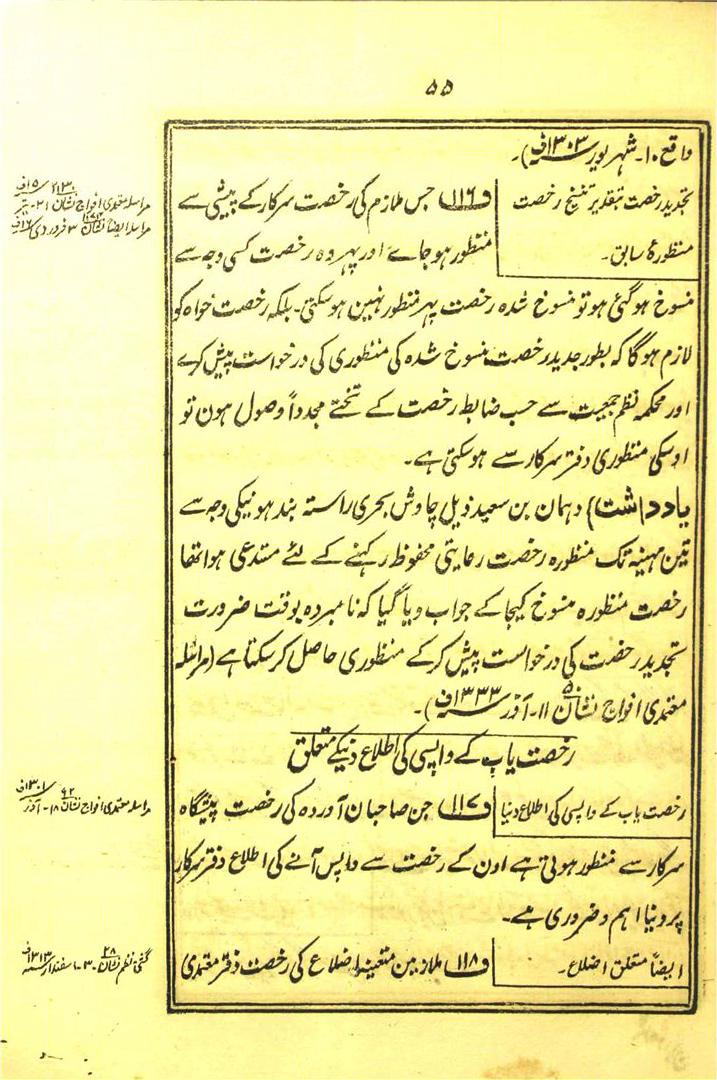 ۵۵
واقع ۱۰۔ شہریور سنہ ۱۳۰۳ف)۔
تجدید رخصت بتقدیر تنسیخ رخصت
منظورۂ سابق۔
ف۱۱۶ جس ملازم کی رخصت سرکار کے پیشی سے
منظور ہو جاے اور پہر وہ رخصت کسی وجہ سے
منسوخ ہو گئی ہو تو منسوخ شدہ رخصت پہر منظور نہین ہو سکتی۔ بلکہ رخصت خواہ کو
لازم ہو گا کہ بطور جدید رخصت منسوخ شدہ کی منظوری کی درخواست پیش کرے
اور محکمہ نظم جمعیت سے حسب ضابطہ رخصت کے تختے مجدداً وصول ہون تو
اوسکی منظوری دفتر سرکار سے ہو سکتی ہے۔
یادداشت) دہمان بن سعید ذیل چاوش بحری راستہ بند ہونیکی وجہ سے
تین مہینہ تک منظورہ رخصت رعایتی محفوظ رکہنے کے لئے مستدعی ہوا تھا
رخصت منظورہ منسوخ کیجا کے جواب دیا گیا کہ نامبردہ بوقت ضرورت
تجدید رخصت کی درخواست پیش کر کے منظوری حاصل کر سکتا ہے (مراسلہ
معتمدی افواج نشان ۵ ۱۱۔ آذر سنہ ۱۳۳۳ف)۔
رخصت یاب کے واپسی کی اطلاع دنیکے متعلق
رخصت یاب کے واپسی کی اطلاع دنیا
ف۱۱۷ جن صاحبان آوردہ کی رخصت پیشگاہ
سرکار سے منظور ہوتی ہے اون کے رخصت سے واپس آنے کی اطلاع دفتر سرکار
پر دنیا اہم و ضروری ہے۔
ایضاً متعلق اضلاع۔
ف۱۱۸ ملازمین متعینہ اضلاع کی رخصت دفتر معتمدی
مراسلہ معتمدی افواج نشان ۲۱۔ تیر
مراسلہ ایضاً نشان ۳ فروردی
مراسلہ معتمدی افواج نشان ۶۲ ۱۸۔ آذر سنہ ۱۳۰۱ف
گشتی نظم نشان ۲۸ ۳۰۔ اسفندار سنہ ۱۳۱۳ف